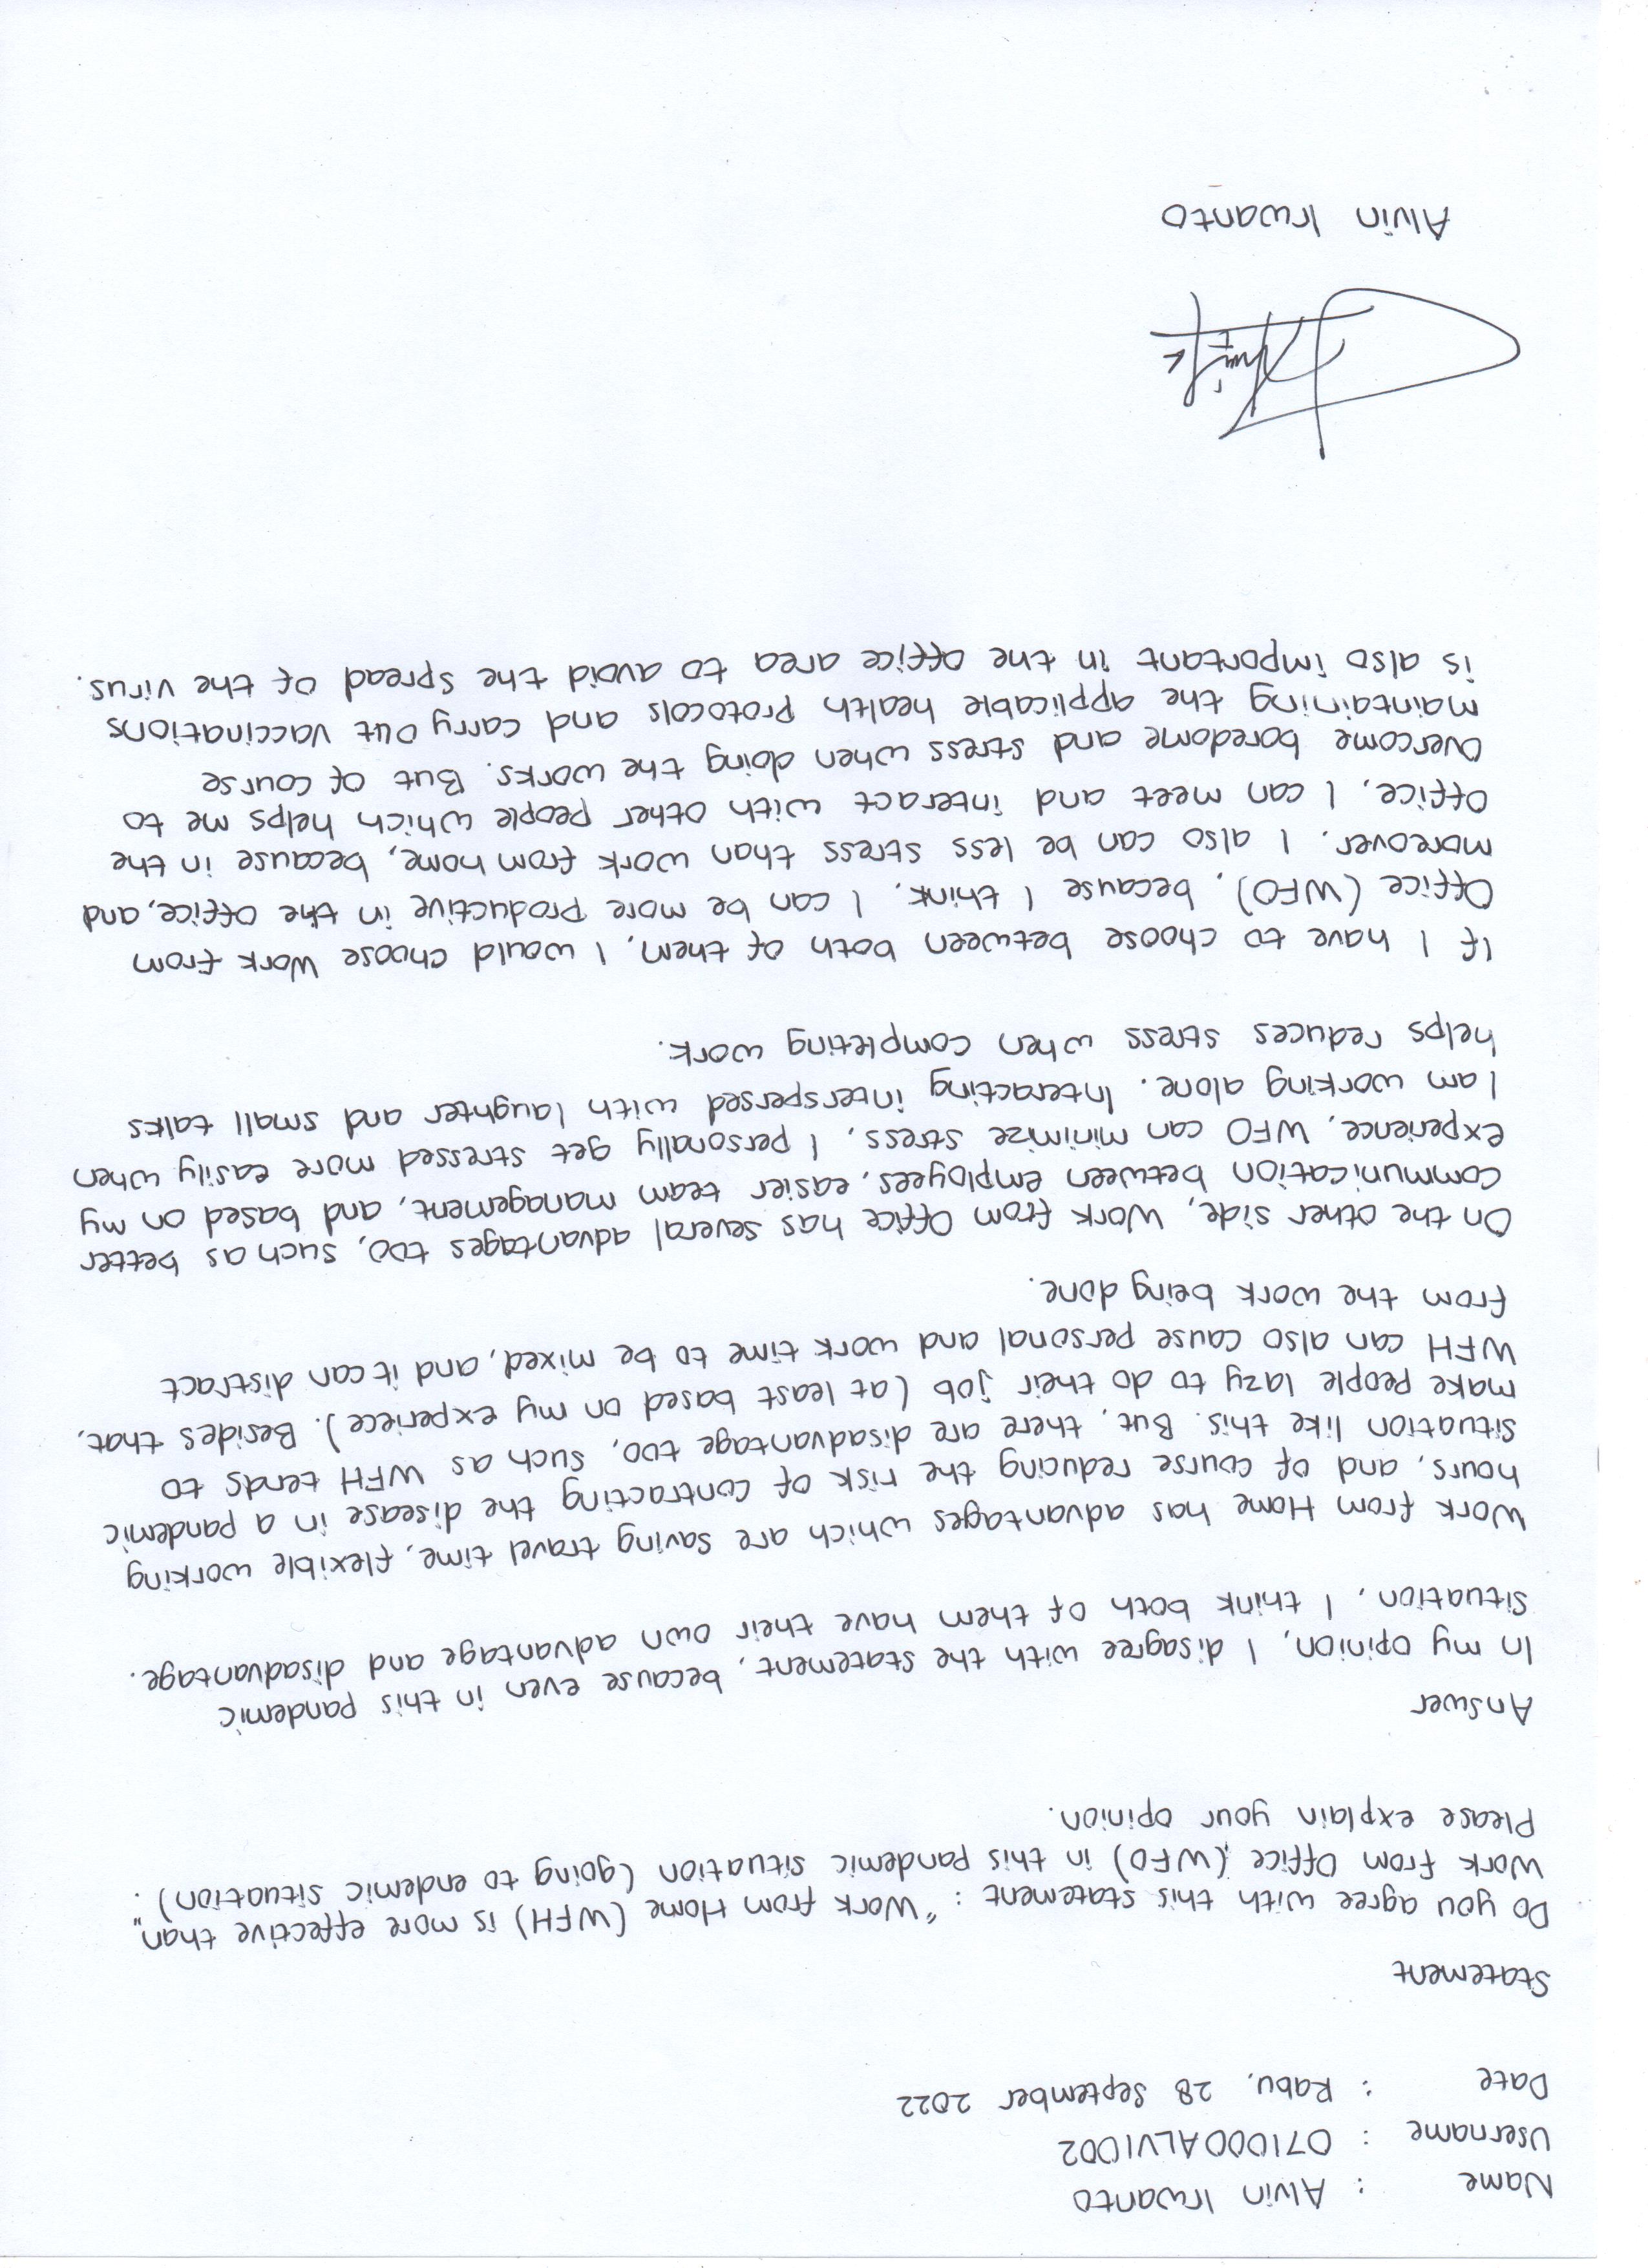 Name : Alvin Irwanto
Username : 071000ALVI002
Date : Rabu, 28 September 2022
Statement
Do you agree with this statement : "Work from Home (WFH) is more effective than
Work from Office (WFO) in this pandemic situation (going to endemic situation)".
Please explain your opinion.
Answer
In my opinion, I disagree with the statement, because even in this pandemic
situation, I think both of them have their own advantage and disadvantage.
Work from Home has advantages which are saving travel time, flexible working
hours, and of course reducing the risk of contracting the disease in a pandemic
situation like this. But, there are disadvantage too, such as WFH tends to
make people lazy to do their job (at least based on my experiece). Besides that,
WFH can also cause personal and work time to be mixed, and it can distract
from the work being done.
On the other side, Work from Office has several advantages too, such as better
communication between employees, easier team management, and based on my
experience, WFO can minimize stress, I personally get stressed more easily when
I am working alone. Interacting interspersed with laughter and small talks
helps reduces stress when completing work.
If I have to choose between both of them, I would choose Work from
Office (WFO), because I think, I can be more productive in the office, and
moreover, I also can be less stress than work from home, because in the
office, I can meet and interact with other people which helps me to
overcome boredome and stress when doing the works. But of course
maintaining the applicable health protocols and carry out vaccinations
is also important in the office area to avoid the spread of the virus.
Alvin Irwanto